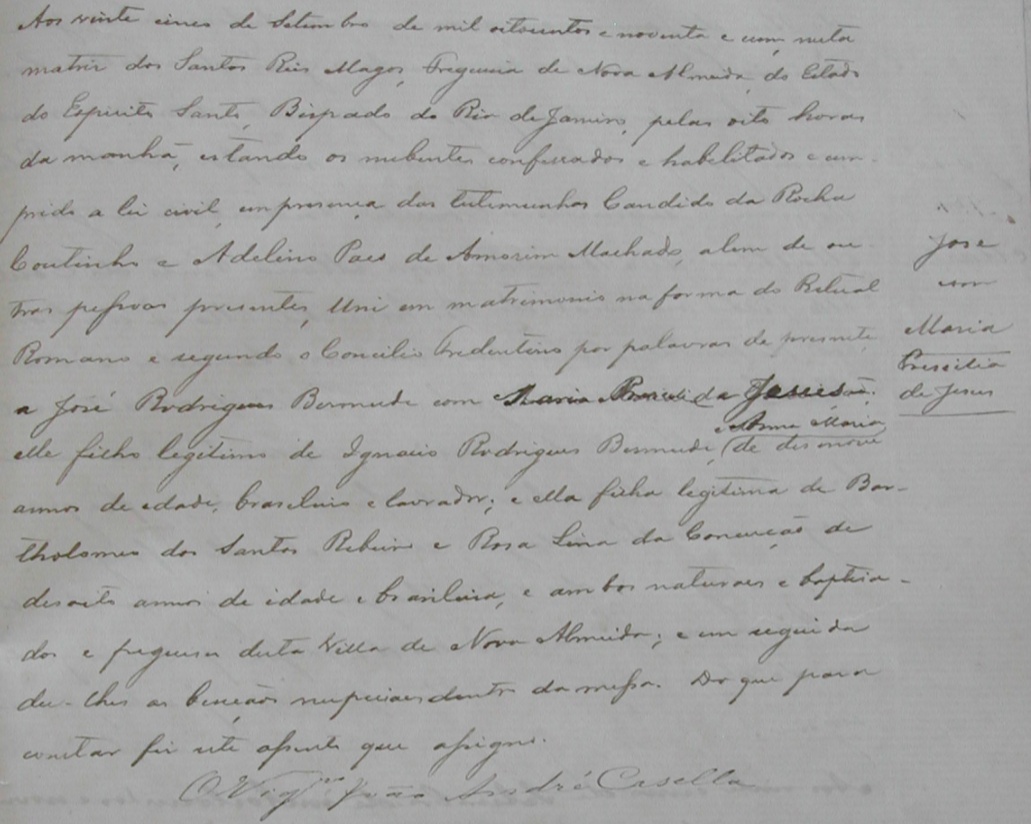 Aos vinte cinco de Setembro de mil oitocentos e noventa e um, nesta
matriz dos Santos Reis Magos, Freguesia de Nova Almeida, do Estado
do Espirito Santo, Bispado do Rio de Janeiro, pelas oito horas
da manhã, estando os nubentes confessados e habilitados e cum-
prido a lei civil, em presença das testemunhas Candido da Rocha
Coutinho e Adelino Paes de Amorim Machado, alem de ou
tras pessoas presentes, Uni em matrimonio na forma do Ritual
Romano e segundo o Concilio Tredentino por palavras de presente
a José Rodrigues Bermude com Maria da Jesus
e Anna Maria
elle filho legitimo de Ignacio Rodrigues Bermude, (de desnove
annos de idade, brasileiro e lavrador; e ella filha legitima de Bar-
tholomeu dos Santos Ribeiro e Rosa Lina da Conceição de
desoito annos de idade e brasileira, e ambos naturaes e baptisa-
dos e freguesa desta Villa de Nova Almeida; e em seguida
dei-lhes as bençãos nupciaes dentro da missa. Do que para
constar fiz este assento que assigno.
O Vigr.º João André Casella
José
com
Maria
Prescilia
de Jesus